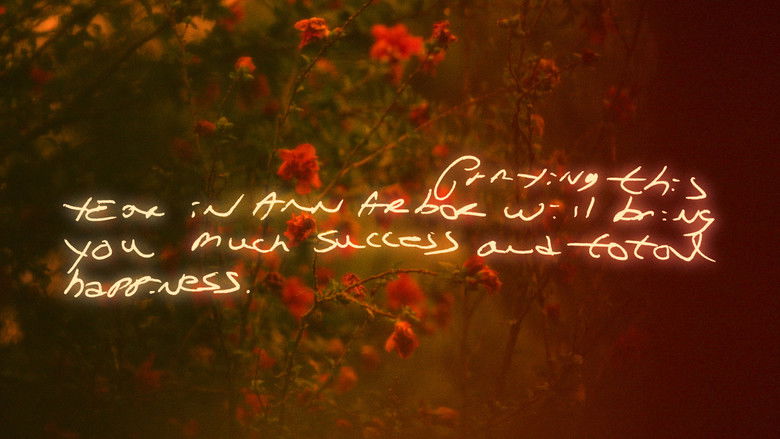 Partying this
year in Ann Arbor will bring
you much success and total
happiness.